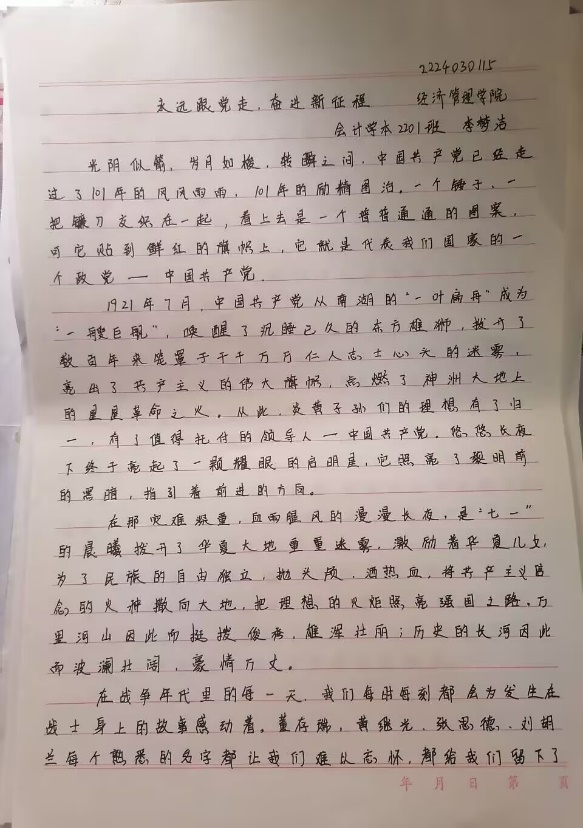 2224030115
永远跟党走,奋进新征程 经济管理学院
会计学本2201班 李梦洁
光阴似箭,岁月如梭,转瞬之间,中国共产党已经走
过了101年的风风雨雨,101年的励精图治。一个锤子,一
把镰刀交织在一起,看上去是一个普普通通的图案,
可它贴到鲜红的旗帜上,它就是代表我们国家的一
个政党——中国共产党.
1921年7月,中国共产党从南湖的“一叶扁舟”成为
“一艘巨舰”,唤醒了沉睡已久的东方雄狮,拨开了
数百年来笼罩于千千万万仁人志士心头的迷雾,
亮出了共产主义的伟大旗帜,点燃了神州大地上
的星星革命之火。从此,炎黄子孙们的理想有了归
一,有了值得托付的领导人—中国共产党.悠悠长夜
下终于亮起了一颗耀眼的启明星,它照亮了黎明前
的黑暗,指引着前进的方向。
在那灾难频重,血雨腥风的漫漫长夜,是“七一”
的晨曦拨开了华夏大地重重迷雾,激励着华夏儿女,
为了民族的自由独立,抛头颅,洒热血,将共产主义信
念的火种撒向大地,把理想的火炬照亮强国之路.万
里河山因此而挺拔俊秀,雄浑壮丽;历史的长河因此
而波澜壮阔,豪情万丈。
在战争年代里的每一天,我们每时每刻都会为发生在
战士身上的故事感动着。董存瑞,黄继光,张思德,刘胡
兰每个熟悉的名字都让我们难以忘怀,都给我们留下了
年 月 日 第 页